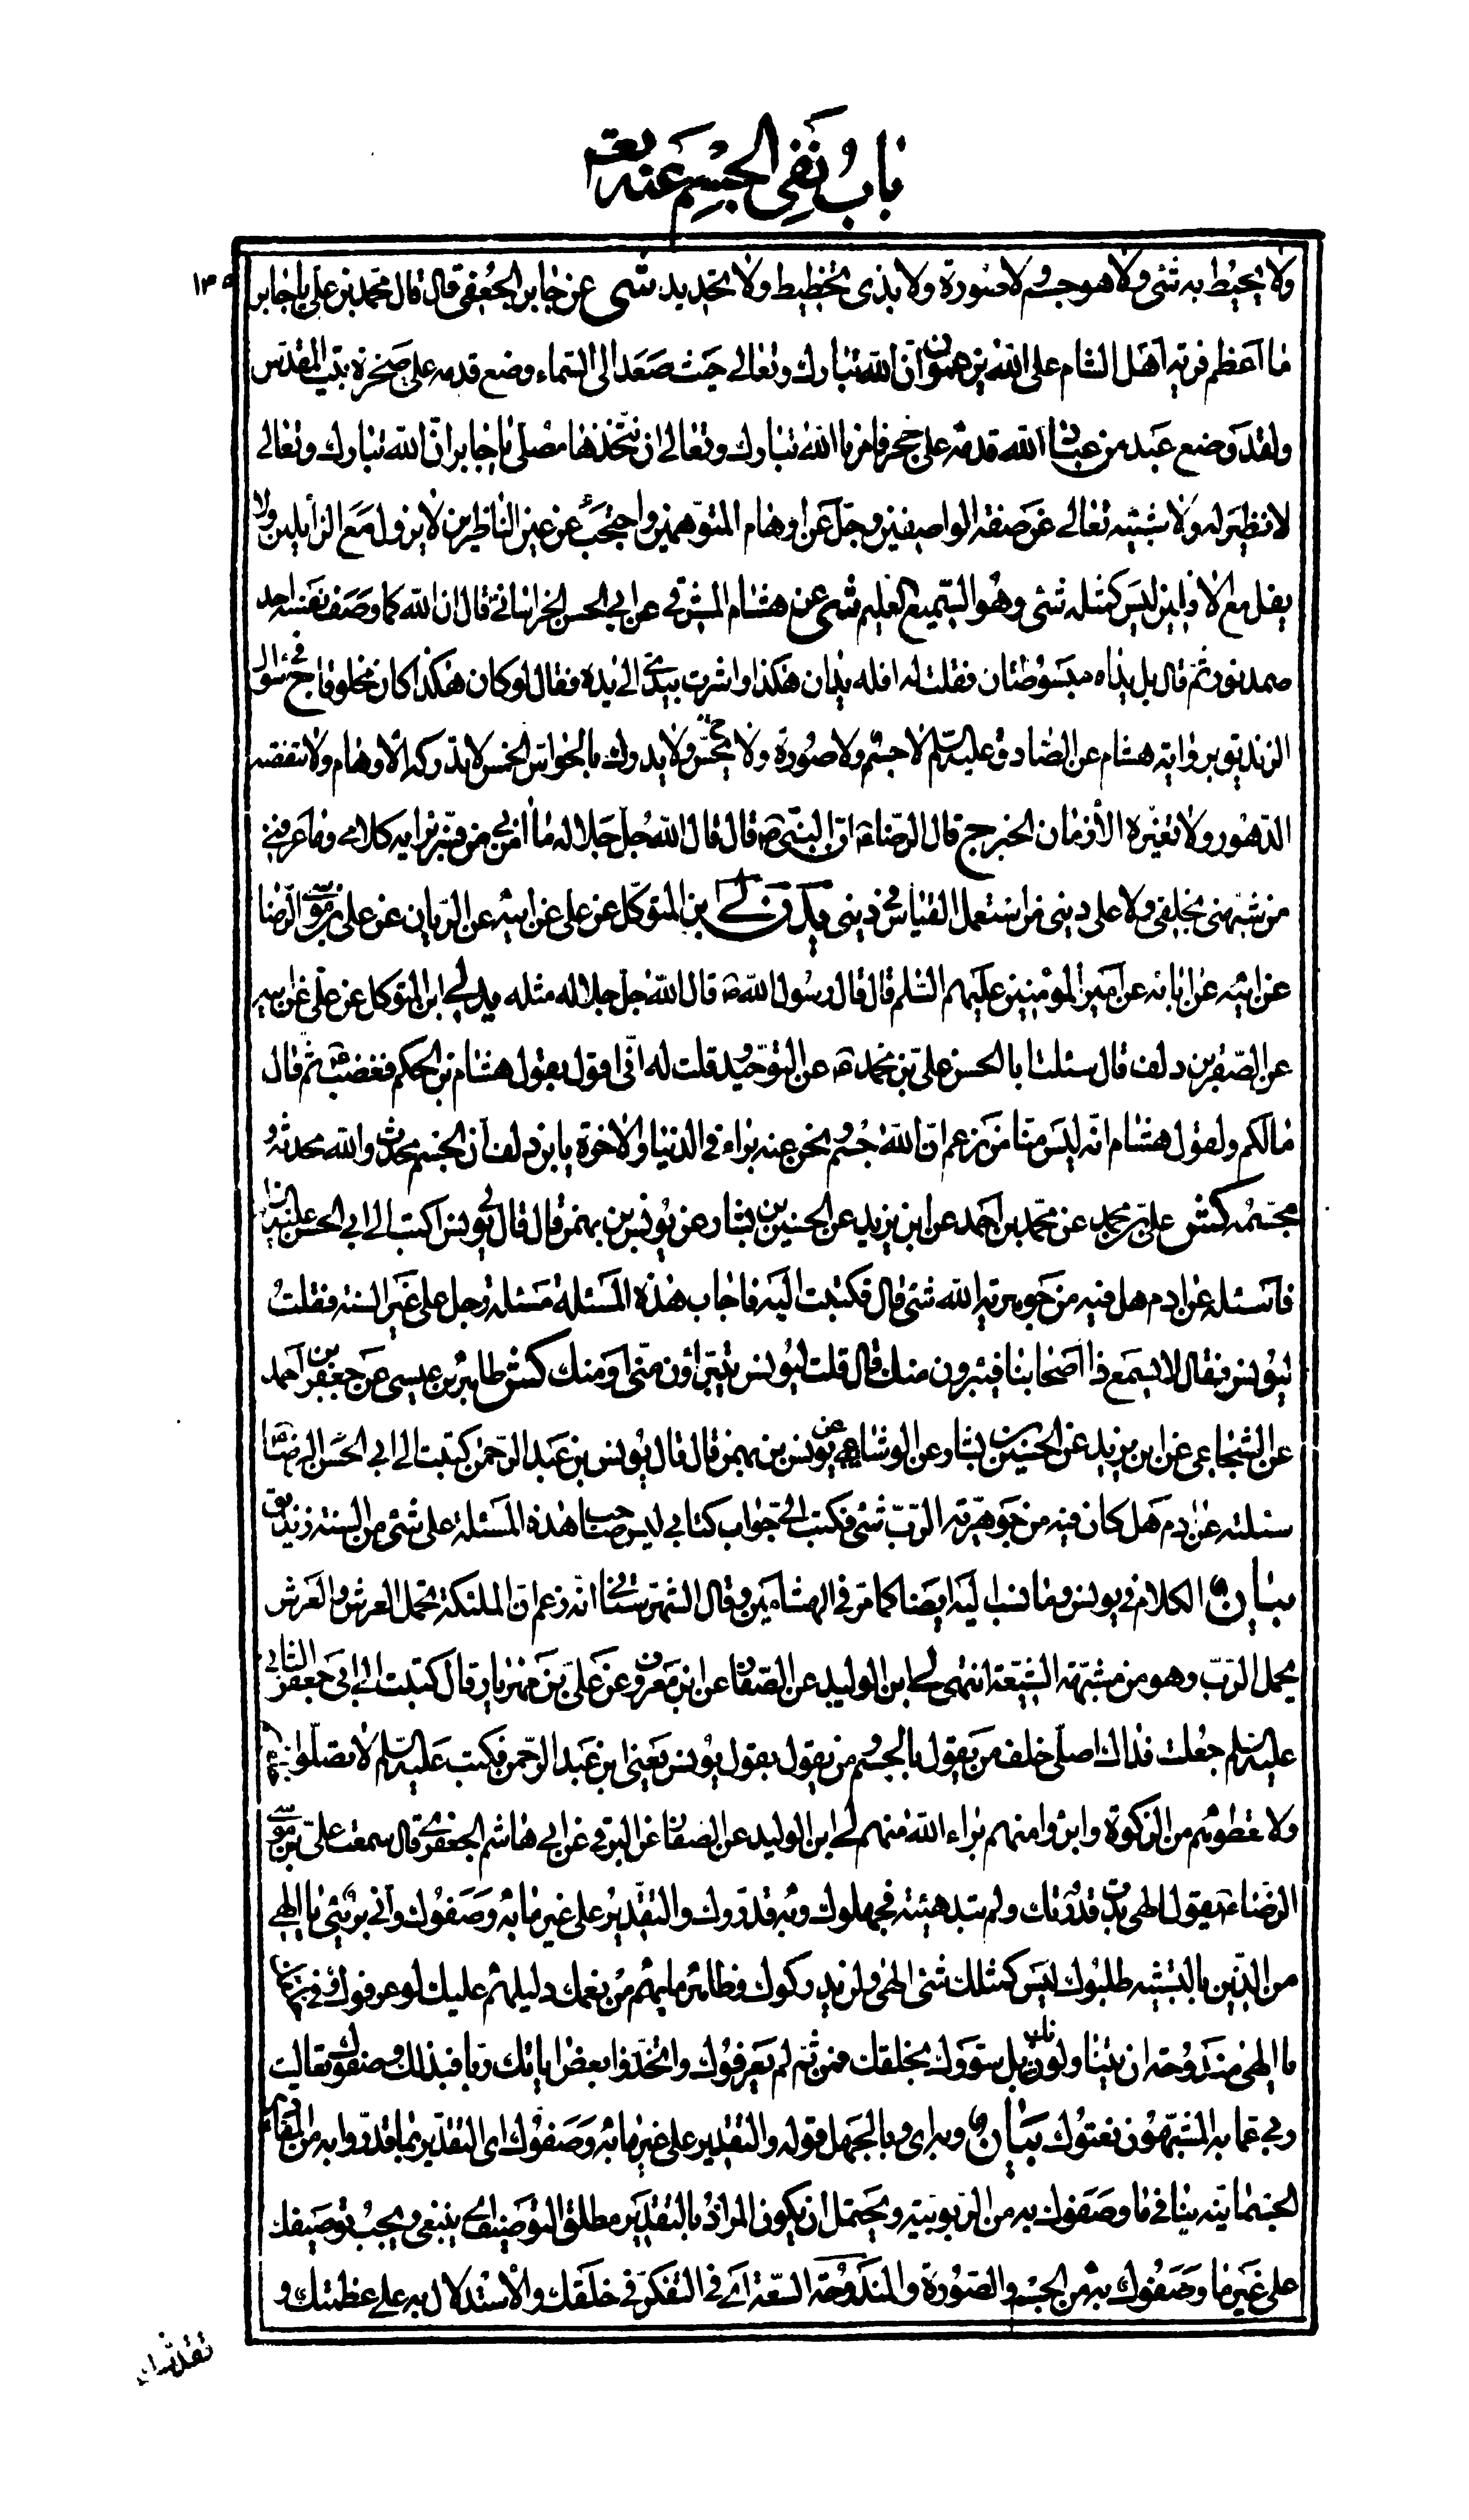 باب نفى الجسم عنه تعم
ولا يحيط به شئ ولا هو جسم ولا صورة ولا بذى تخطيط ولا تحديد شى عن جابر الجعفى قال قال محمد بن على يا جابر
١٣٩
ما اعظم فرية اهل الشام على الله يزعمون ان الله تبارك وتعالى حيث صعد الى السماء وضع قدمه على صخرة بيت المقدس
ولقد وضع عبد من عباد الله قدمه على حجر فامرنا الله تبارك وتعالى ان نتخذها مصلى يا جابر ان الله تبارك وتعالى
لا نظير له ولا شبيه تعالى عن صفة الواصفين وجل عن اوهام المتوهمين واحتجب عن عين الناظرين لا يزول مع الزايلين ولا
يفل مع الافلين ليس كمثله شئ وهو السميع العليم شى عن هشام المشرقى عن ابى الحسن الخراسانى قال ان الله كما وصف نفسه احد
صمد نور ثم قال بل يداه مبسوطتان فقلت له افله يدان هكذا واشرت بيدى الى يده فقال لو كان هكذا كان مخلوقا ج فى سؤال
الزنديق برواية هشام عن الصادق عليه السلم لا جسم ولا صورة ولا يحس ولا يدرك بالحواس الخمس لا تدركه الاوهام ولا تنقصه
الدهور ولا تغيره الازمان الخبر ج قال الرضا ان النبى قال قال الله جل جلاله ما امن بى من فسر برايه كلامى وما عرفنى
من شبهنى بخلقى ولا على دينى من استعمل القياس فى دينى يد ن لى بن المتوكل عن على عن ابيه عن الريان عن على بن موسى الرضا
عن ابيه عن ابائه عن امير المؤمنين عليهم السلم قال قال رسول الله قال الله جل جلاله مثله يد لى ابن المتوكل عن على عن ابيه
عن الصقر بن دلف قال سئلت ابا الحسن على بن محمد عن التوحيد وقلت له انى اقول بقول هشام بن الحكم فغضب ثم قال
ما لكم ولقول هشام انه ليس منا من زعم ان الله جسم ونحن منه براء فى الدنيا والاخرة يا بن دلف ان الجسم محدث والله محدثه و
مجسمه كش على بن محمد عن محمد بن احمد عن ابن يزيد عن الحسين بن بشار عن يونس بن بهمن قال قال لى يونس اكتب الى ابى الحسن
فاسئله عن ادم هل فيه من جوهرية الله شئ قال فكتبت اليه فاجاب هذه المسئلة مسئلة رجل على غير السنة فقلت
ليونس فقال لا يسمع ذا اصحابنا فيبرون منك قال قلت ليونس يتبراون منى او منك كش طاهر بن عيسى عن جعفر بن احمد
عن الشجاعى عن ابن يزيد عن الحسين بن بشار عن الوشا عن يونس بن بهمن قال قال يونس بن عبد الرحمن كتبت الى ابى الحسن الرضا
سئلته عن ادم هل كان فيه من جوهرية الرب شئ فكتب الى جواب كتابى ليس صاحب هذه المسئلة على شئ من السنة زنديق
بيان الكلام فى يونس وما نسب اليه ايضا كما مر فى الهشامين وقال الشهرستانى انه زعم ان الملئكة تحمل العرش والعرش
يحمل الرب وهو من مشبهة الشيعة انتهى لى ابن الوليد عن الصفار عن ابن معروف عن على بن مهزيار قال كتبت الى ابى جعفر الثانى
عليه السلم جعلت فداك اصلى خلف من يقول بالجسم ومن يقول بقول يونس يعنى ابن عبد الرحمن فكتب عليه السلم لا تصلوا
ولا تعطوهم من الزكوة وابرؤا منهم براء الله منهم لى ابن الوليد عن الصفار عن البرقى عن ابى هاشم الجعفرى قال سمعت على بن موسى
الرضا يقول الهى بدت قدرتك ولم تبد هيئة فجهلوك وبه قدروك والتقدير على غير ما به وصفوك وانى برئ يا الهى
من الذين بالتشبيه طلبوك ليس كمثلك شئ الهى ولن يدركوك وظاهر ما بهم من نعمك دليلهم عليك لو عرفوك وفى خلقك
يا الهى مندوحة ان يتناولوك بل سووك بخلقك فمن ثم لم يعرفوك واتخذوا بعض اياتك ربا فبذلك وصفوك تعاليت
ربى عما به المشبهون نعتوك بيان وبه اى وبالجهل قوله والتقدير على غير ما به وصفوك اى التقدير بما قدروا به من المقادير
الجسمانية ينافى ما وصفوك به من الربوبية ويحتمل ان يكون المراد بالتقدير مطلق التوصيف اى ينبغى ويجب توصيفك
على غير ما وصفوك به من الجسم والصورة والمندوحة السعة اى فى التفكر فى خلقك والاستدلال به على عظمتك و